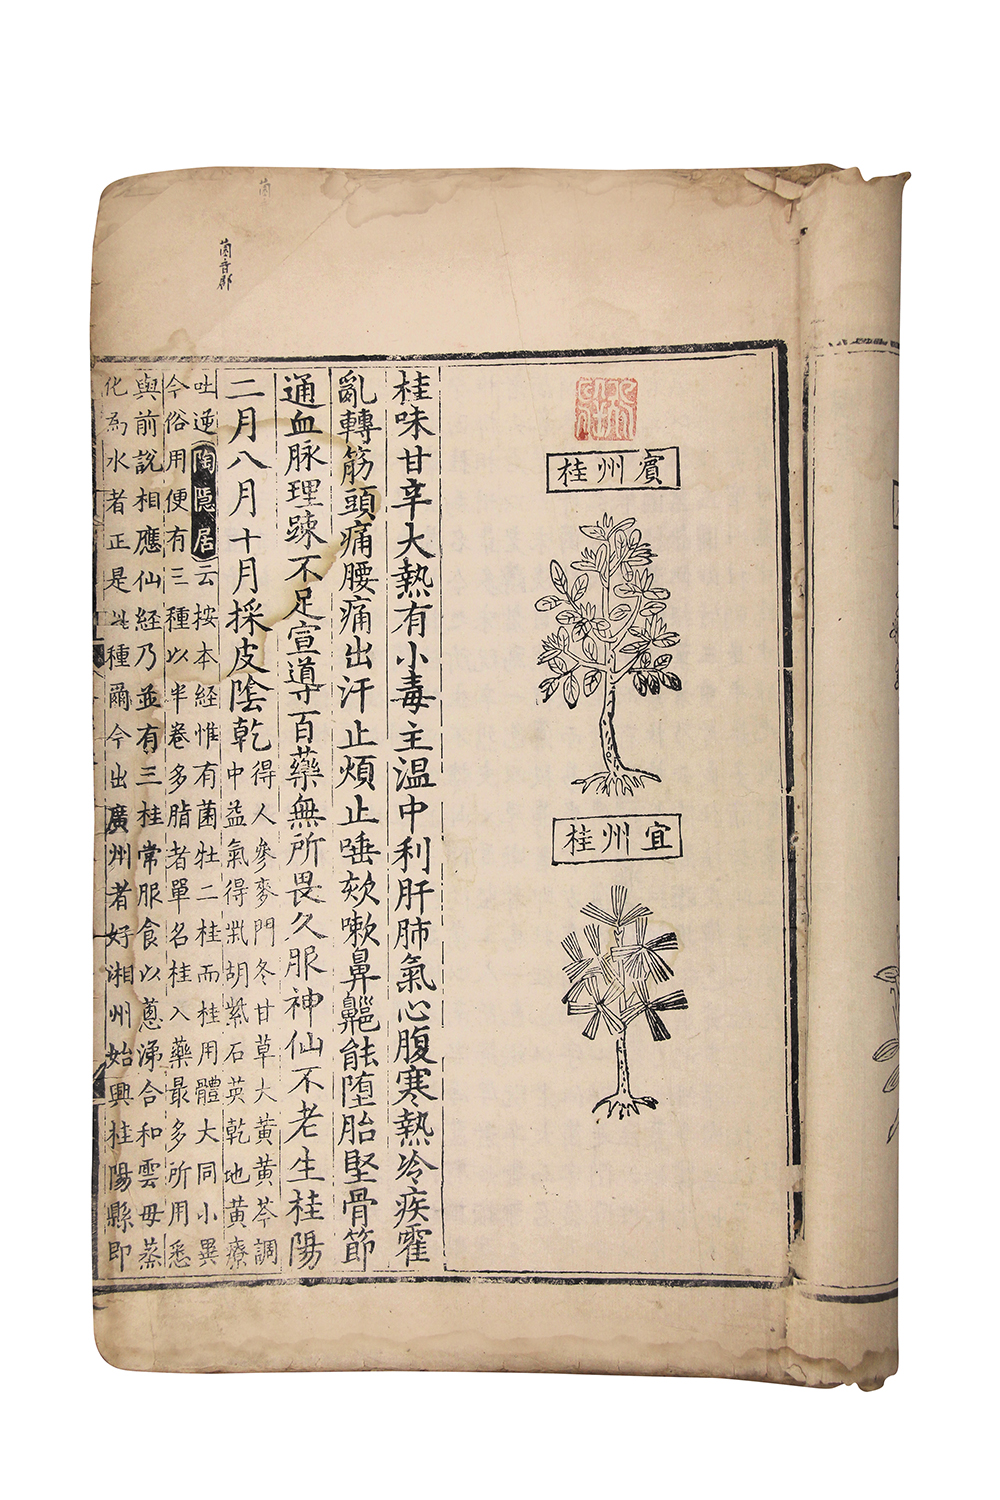 賔州桂
宜州桂
桂味甘辛大熱有小毒主温中利肝肺氣心腹寒熱冷疾霍
亂轉筋頭痛腰痛出汗止煩止唾欬嗽鼻齆能墮胎堅骨節
通血脉理踈不足宣導百藥無所畏久服神仙不老生桂陽
二月八月十月採皮陰乾
得人參麥門冬甘草大黃黃芩調
中益氣得茈胡紫石英乾地黃療
吐逆陶隱居云按本經惟有菌牡二桂而桂用體大同小異
今俗用便有三種以半卷多脂者單名桂入藥最多所用悉
與前說相應仙經乃並有三桂常服食以蔥涕合和雲母蒸
化為水者正是此種爾今出廣州者好湘州始興桂陽縣即
菌音郡
菌